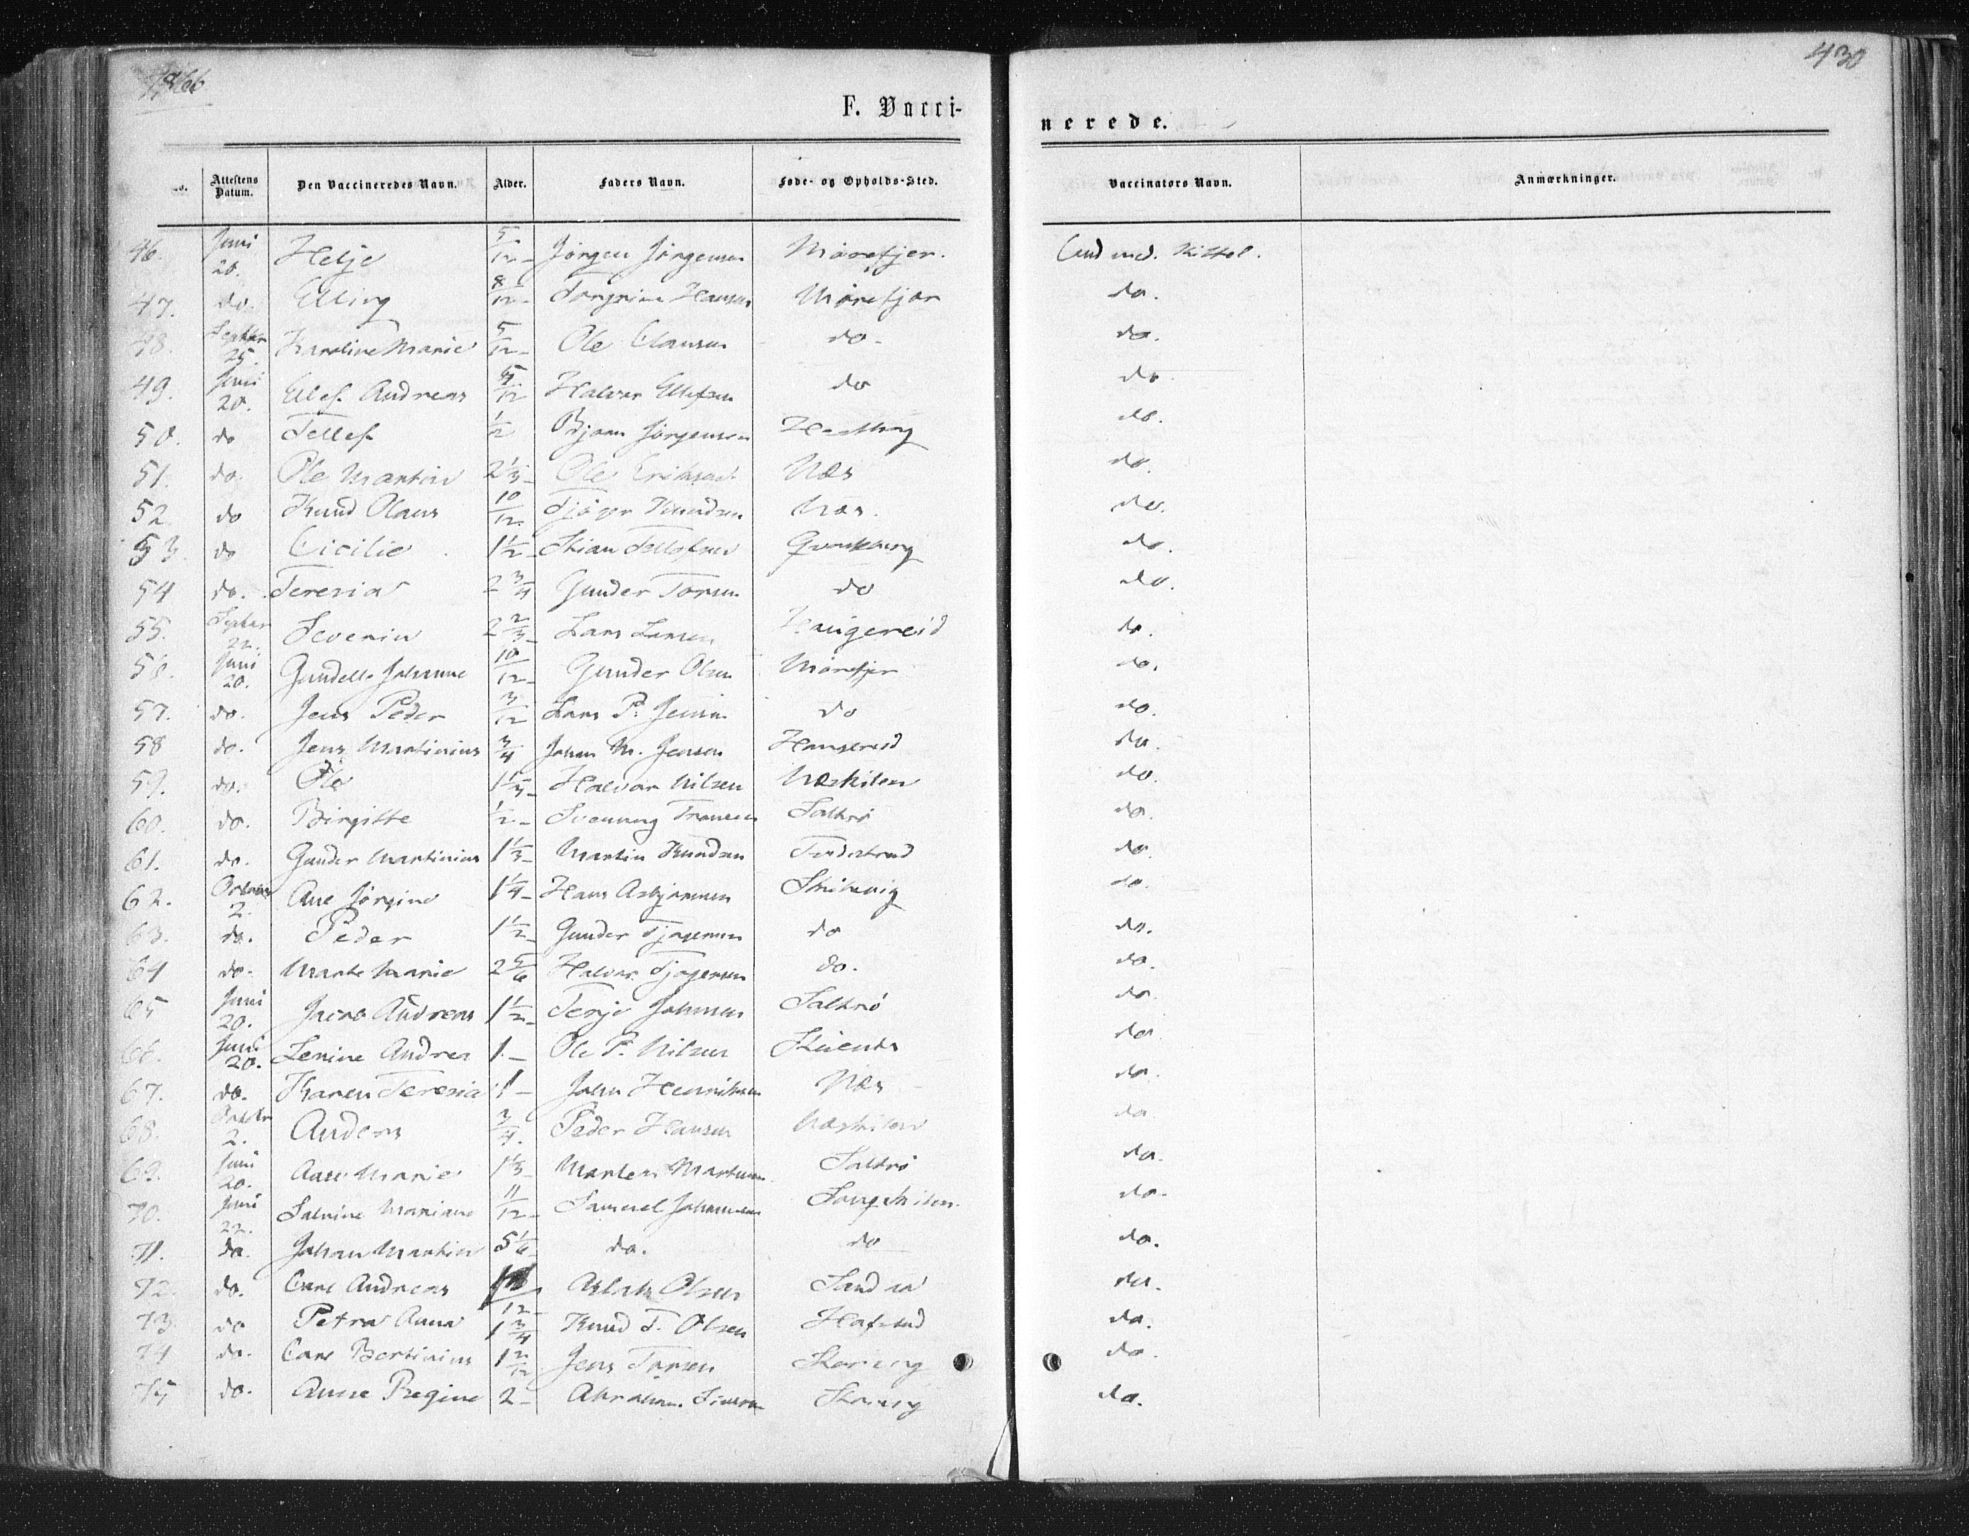 1866
430
F. Vacci-
nerede.
No. Attestens Datum. Den Vaccineredes Navn. Alder. Faders Navn. Føde- og Opholds-Sted. Vaccinators Navn. Anmærkninger.
46. Juni 20. Helje 5/12 Jørgen Jørgensen Mørefjer. Cand med. Kittel.
47. do. Elling 8/12 Hansen Mørefjær do.
48. Septbr 25. Karoline Marie 5/12 Ole Clausen do. do.
49. Juni 20. Ellef Andreas 5/12 Halvor Ellefsen do do
50. do Tellef 1/2 Bjørn Jørgensen do.
51. do. Ole Martin 2 1/3 Ole Eriksen Næs do.
52. do Knud Olaus 10/12 Tjøger Knudsen Næs. do.
53. do Cicilie 1 1/2 Stian Tellefsen do.
54 do. Teresia 2 3/4 Gunder Torsen do do.
55. Septbr 22. Severin 2 2/3 Lars Larsen Haugereid do.
56. Juni 20. Gundelle Johanne 10/12 Gunder Olsen Mørefjer do.
57. do. Jens Peder 3/12 Lars P. Jensen do do.
58 do. Jens Martinius 3/4 Johan M. Jensen Haugereid do.
59. do. Ole 1 1/3 Halvor Nilsen Næskilen do.
60. do. Birgitte 1/2 Svenning Saltrø do.
61. do. Gunder Martinius 1 1/3 Martin Knudsen do.
62. Octover 2. Ane Jørgine 1 1/4 Hans Asbjørnsen Stribevig do.
63. do. Peder 1 1/2 Gunder Tjøgersen do do.
64 do. Marte Marie 2 5/6 Halvor Tjøgersen do. do.
65 Juni 20. Jacob Andreas 1 1/2 Terje Johnsen Saltrø do.
66. Juni 20. Lenine Andrea 1. Ole P. Nilsen do.
67. do. Karen Teresia 1 John Henriksen Næs do.
68. Octobr 2. Anders 3/4. Peder Hansen Næskilen do
69. Juni 20. Aase Marie 1 1/3 Saltrø do.
70. Juni 22. Salvine Mariane 11/12 Samuel Johannesen Songekilen. do.
71. do. Johan Martin 5 1/6 do. do do.
72. do. Carl Andreas Aslak Olsen Sandaa do.
73. do Petra Anna 1 3/4 Knud T. Olsen Hafstad do.
74 do. Carl Bertinius 1 2/12 Jens Torsen do.
75 do. Anne Regine 2 Abraham do.